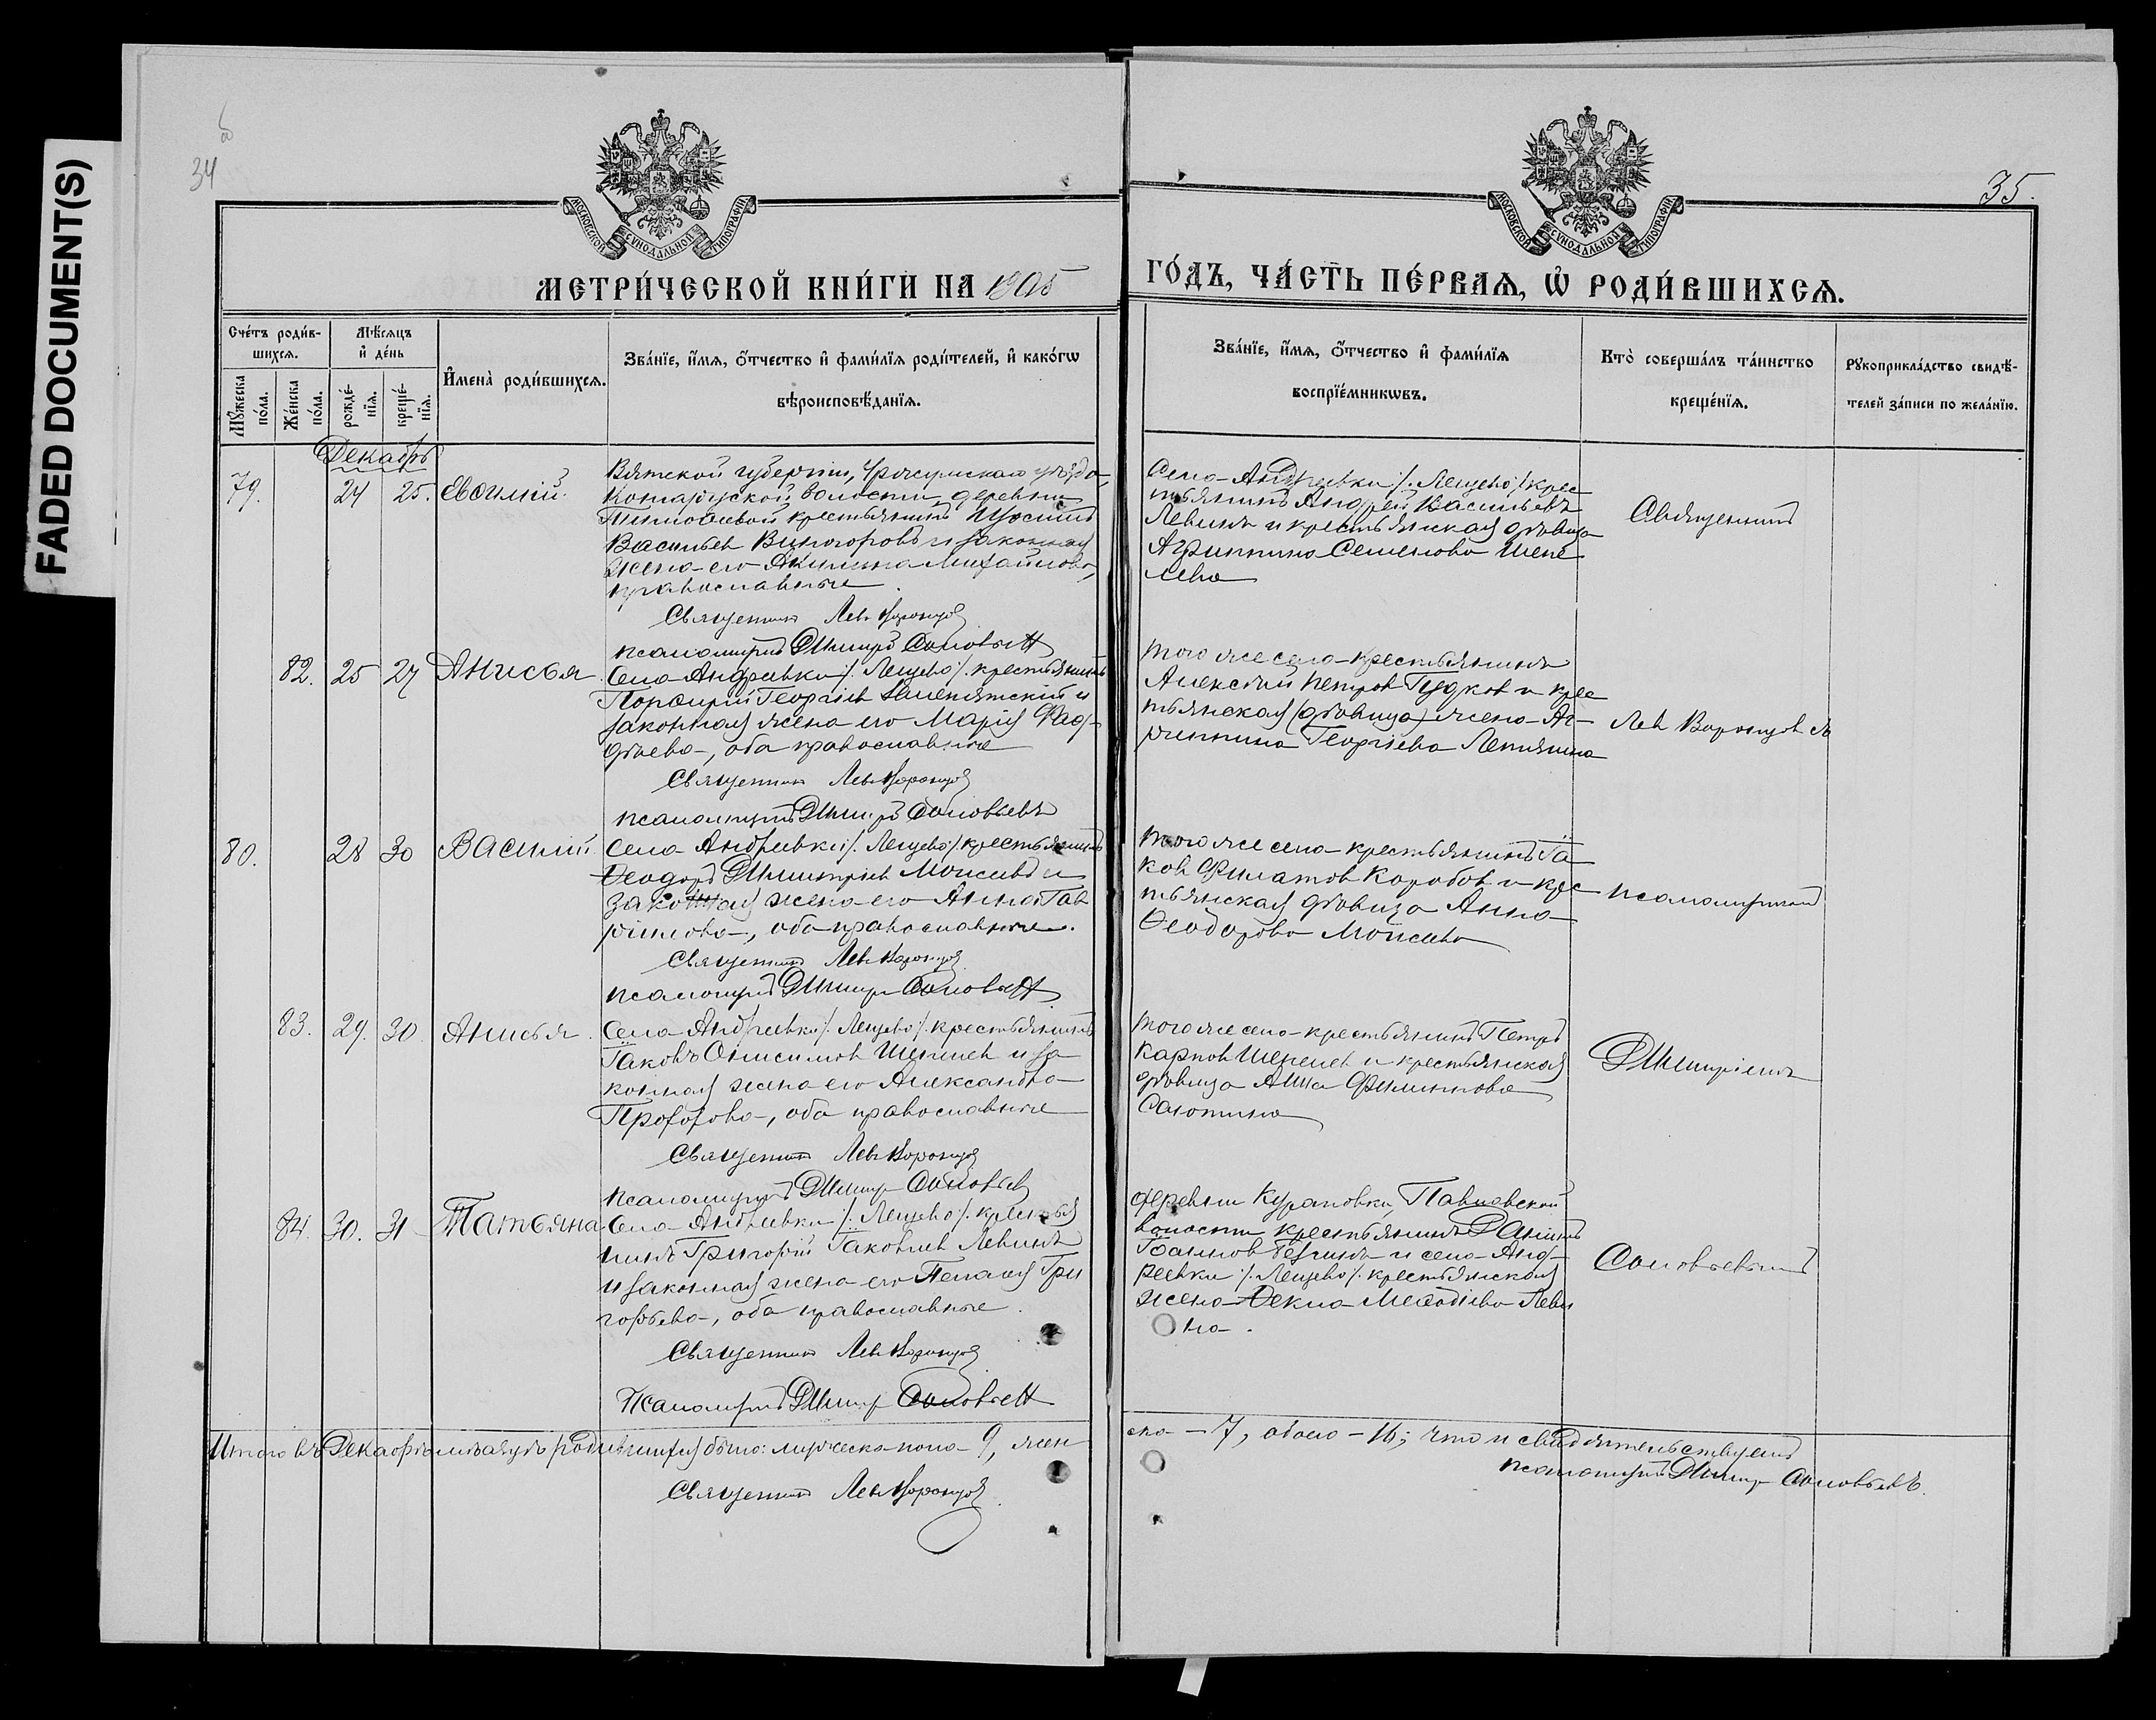 FADED DOCUMENT(S)
34
35.
МОСКОВСКОЙ СѴНОДАЛЬНОЙ ТИПОГРАФІИ
МОСКОВСКОЙ СѴНОДАЛЬНОЙ ТИПОГРАФІИ
МЕТРИ́ЧЕСКОЙ КНИ́ГИ НА 1905
ГО́ДЪ, ЧА́СТЬ ПЕ́РВАѦ, Ѡ҆ РОДИ́ВШИХСѦ.
Сче́тъ роди́в-
шихсѧ.
Мꙋ́жеска по́ла.
Же́нска по́ла.
Мѣ́сѧцъ
и҆ де́нь
рожде́-
нїѧ.
креще́-
нїѧ.
И҆мена̀ роди́вшихсѧ.
Зва́нїе, и҆́мѧ, ѻ҆́тчество и҆ фами́лїѧ роди́телей, и҆ како́гѡ
вѣроисповѣ́данїѧ.
Зва́нїе, и҆́мѧ, ѻ҆́тчество и҆ фами́лїѧ
воспрїе́мникѡвъ.
Кто̀ соверша́лъ та́инство
креще́нїѧ.
Рꙋкоприкла́дство свидѣ́-
телей за́писи по жела́нїю.
Декабрь
79. 24 25. Евѳимій.
Вятской губерніи, Уржумскаго уѣзда,
волости деревни
крестьянинъ
Васильев и законная
жена его Акилина Михайлова,
православные
Священникъ Лев Воронцов
псаломщикъ Димитрій Соловьев
Села Андреевки /. Лещево /. крес
тьянинъ Андрей Васильевъ
Левинъ и крестьянская дѣвица
Агриппина Семенова Шепе
лева
Священникъ
82. 25 27 Анисья
Села Андреевки /. Лещево /. крестьянинъ
Порфирій Георгіев и
законная жена его Марія Фад-
дѣева, оба православные
Священникъ Лев Воронцов
псаломщикъ Димитрій Соловьевъ
Того же села крестьянинъ
Алексѣй Петров Гудков и крес
тьянская (дѣвица) жена Аг-
риппина Георгіева
Лев Воронцов съ
80. 28 30 Василій
Села Андреевки /. Лещево /. крестьянинъ
Ѳеодоръ Димитріев Моисеев и
законная жена его Анна Гав
риилова, оба православные.
Священникъ Лев Воронцов
псаломщикъ Димитрій Соловьев
Того же села крестьянинъ Іа
ков Филатов Коробов и крес
тьянская дѣвица Анна
Ѳеодорова Моисеева
псаломщикомъ
83. 29. 30 Анисья
Села Андреевки /. Лещево /. крестьянинъ
Іаковъ Онисимов Шепелев и за
конная жена его Александра
Прохорова, оба православные
Священникъ Лев Воронцов
псаломщикъ Димитрій Соловьев
Того же села крестьянинъ Петръ
Карпов Шепелев и крестьянская
дѣвица Анна Филиппова
Сапотина
Димитріемъ
84. 30. 31 Татьяна
Села Андреевки /. Лещево /. крестья
нинъ Григорій Іаковлев Левинъ
и законная жена его Пелагія Гри
горьева, оба православные.
Священникъ Лев Воронцов
Псаломщикъ Димитрій Соловьев
Деревни Курановки, Павловской
волости крестьянинъ Даніилъ
Іоаннов и села Анд-
реевки /. Лещево /. крестьянская
жена Ѳекла Меѳодіева Леви
на.
Соловьевымъ
Итого въ Декабрѣ мѣсяцѣ родившихся было: мужеска пола 9, жен
ска – 7, обоего – 16; что и свидѣтельствуемъ
Священникъ Лев Воронцов
псаломщикъ Димитрій Соловьевъ.